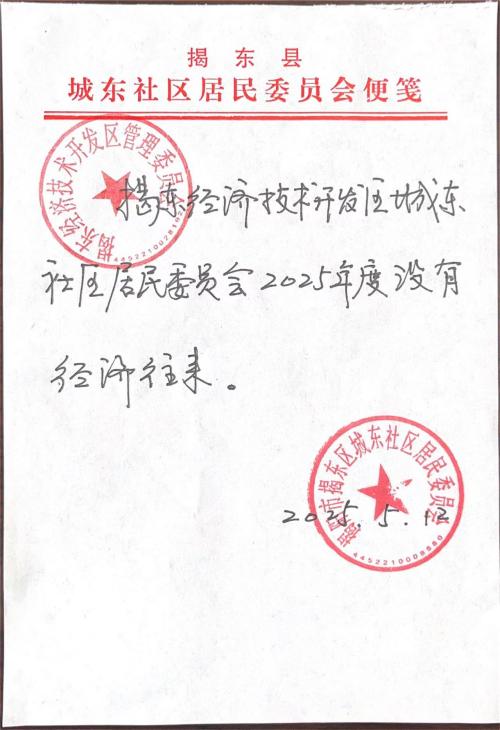 揭东县
城东社区居民委员会便笺
揭东经济技术开发区管理委员会
揭东经济技术开发区城东
社区居民委员会2025年度没有
经济往来。
揭阳市揭东区城东社区居民委员会
2025.5.12
4452210008880